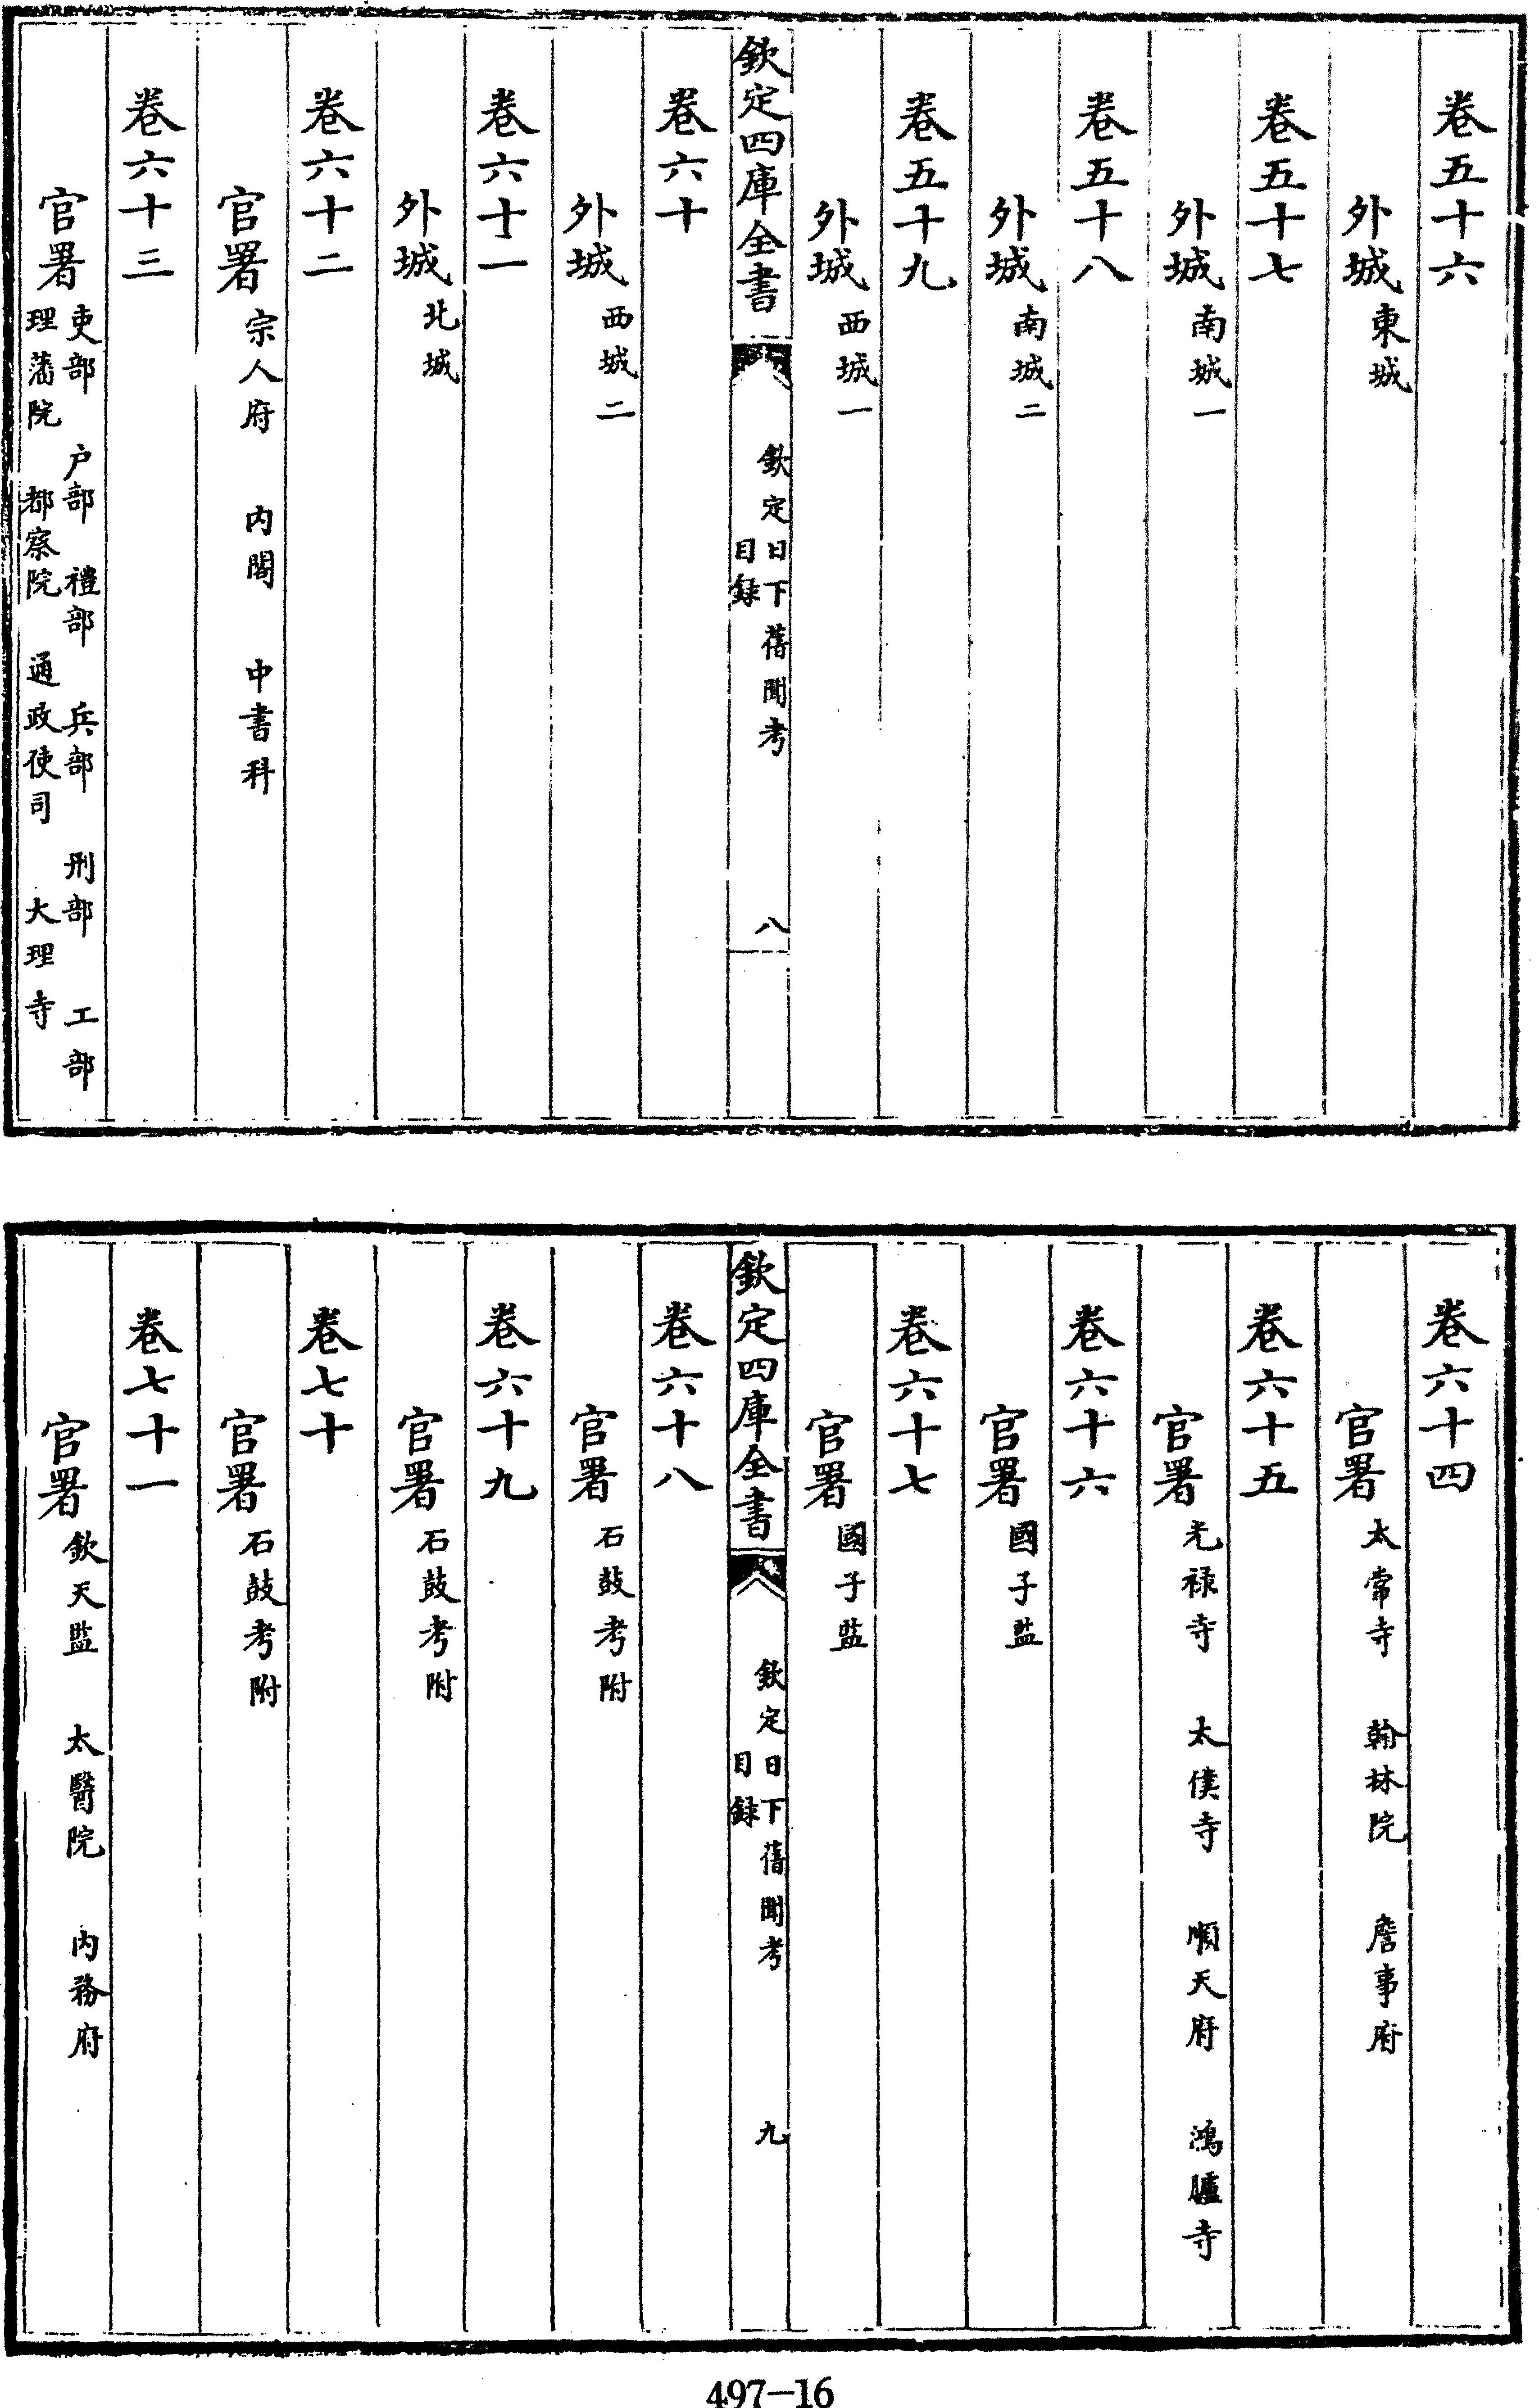 卷五十六
外城東城
卷五十七
外城南城一
卷五十八
外城南城二
卷五十九
外城西城一
欽定四庫全書
欽定日下舊聞考
目録
八
卷六十
外城西城二
卷六十一
外城北城
卷六十二
官署宗人府 内閣 中書科
卷六十三
官署吏部 户部 禮部 兵部 刑部 工部
理藩院 都察院 通政使司 大理寺
卷六十四
官署太常寺 翰林院 詹事府
卷六十五
官署光禄寺 太僕寺 順天府 鴻臚寺
卷六十六
官署國子監
卷六十七
官署國子監
欽定四庫全書
欽定日下舊聞考
目録
九
卷六十八
官署石鼓考附
卷六十九
官署石鼓考附
卷七十
官署石鼓考附
卷七十一
官署欽天監 太醫院 内務府
497-16